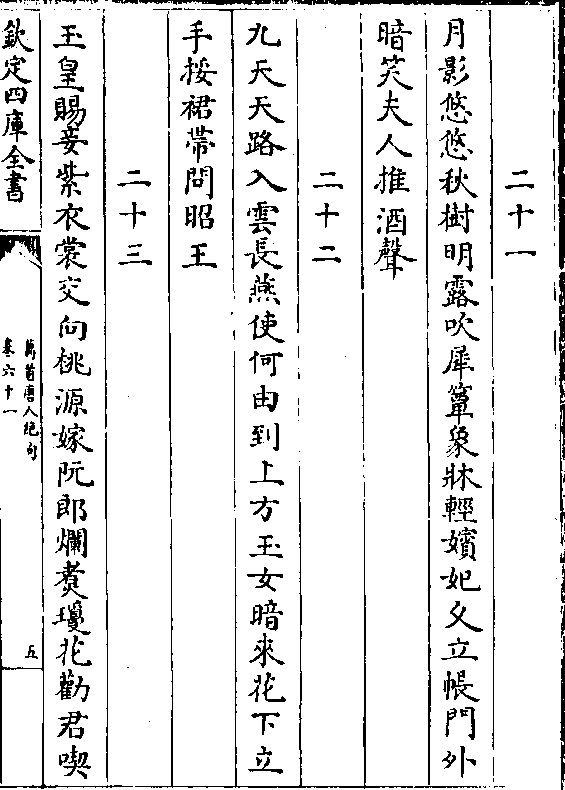 二十一
月影悠悠秋樹明露吹犀簟象牀輕嬪妃久立帳門外
暗笑夫人推酒聲
二十二
九天天路入雲長燕使何由到上方玉女暗來花下立
手挼裙帶問昭王
二十三
玉皇賜妾紫衣裳交向桃源嫁阮郎爛煑瓊花勸君喫
欽定四庫全書
萬首唐人絶句
卷六十一
五